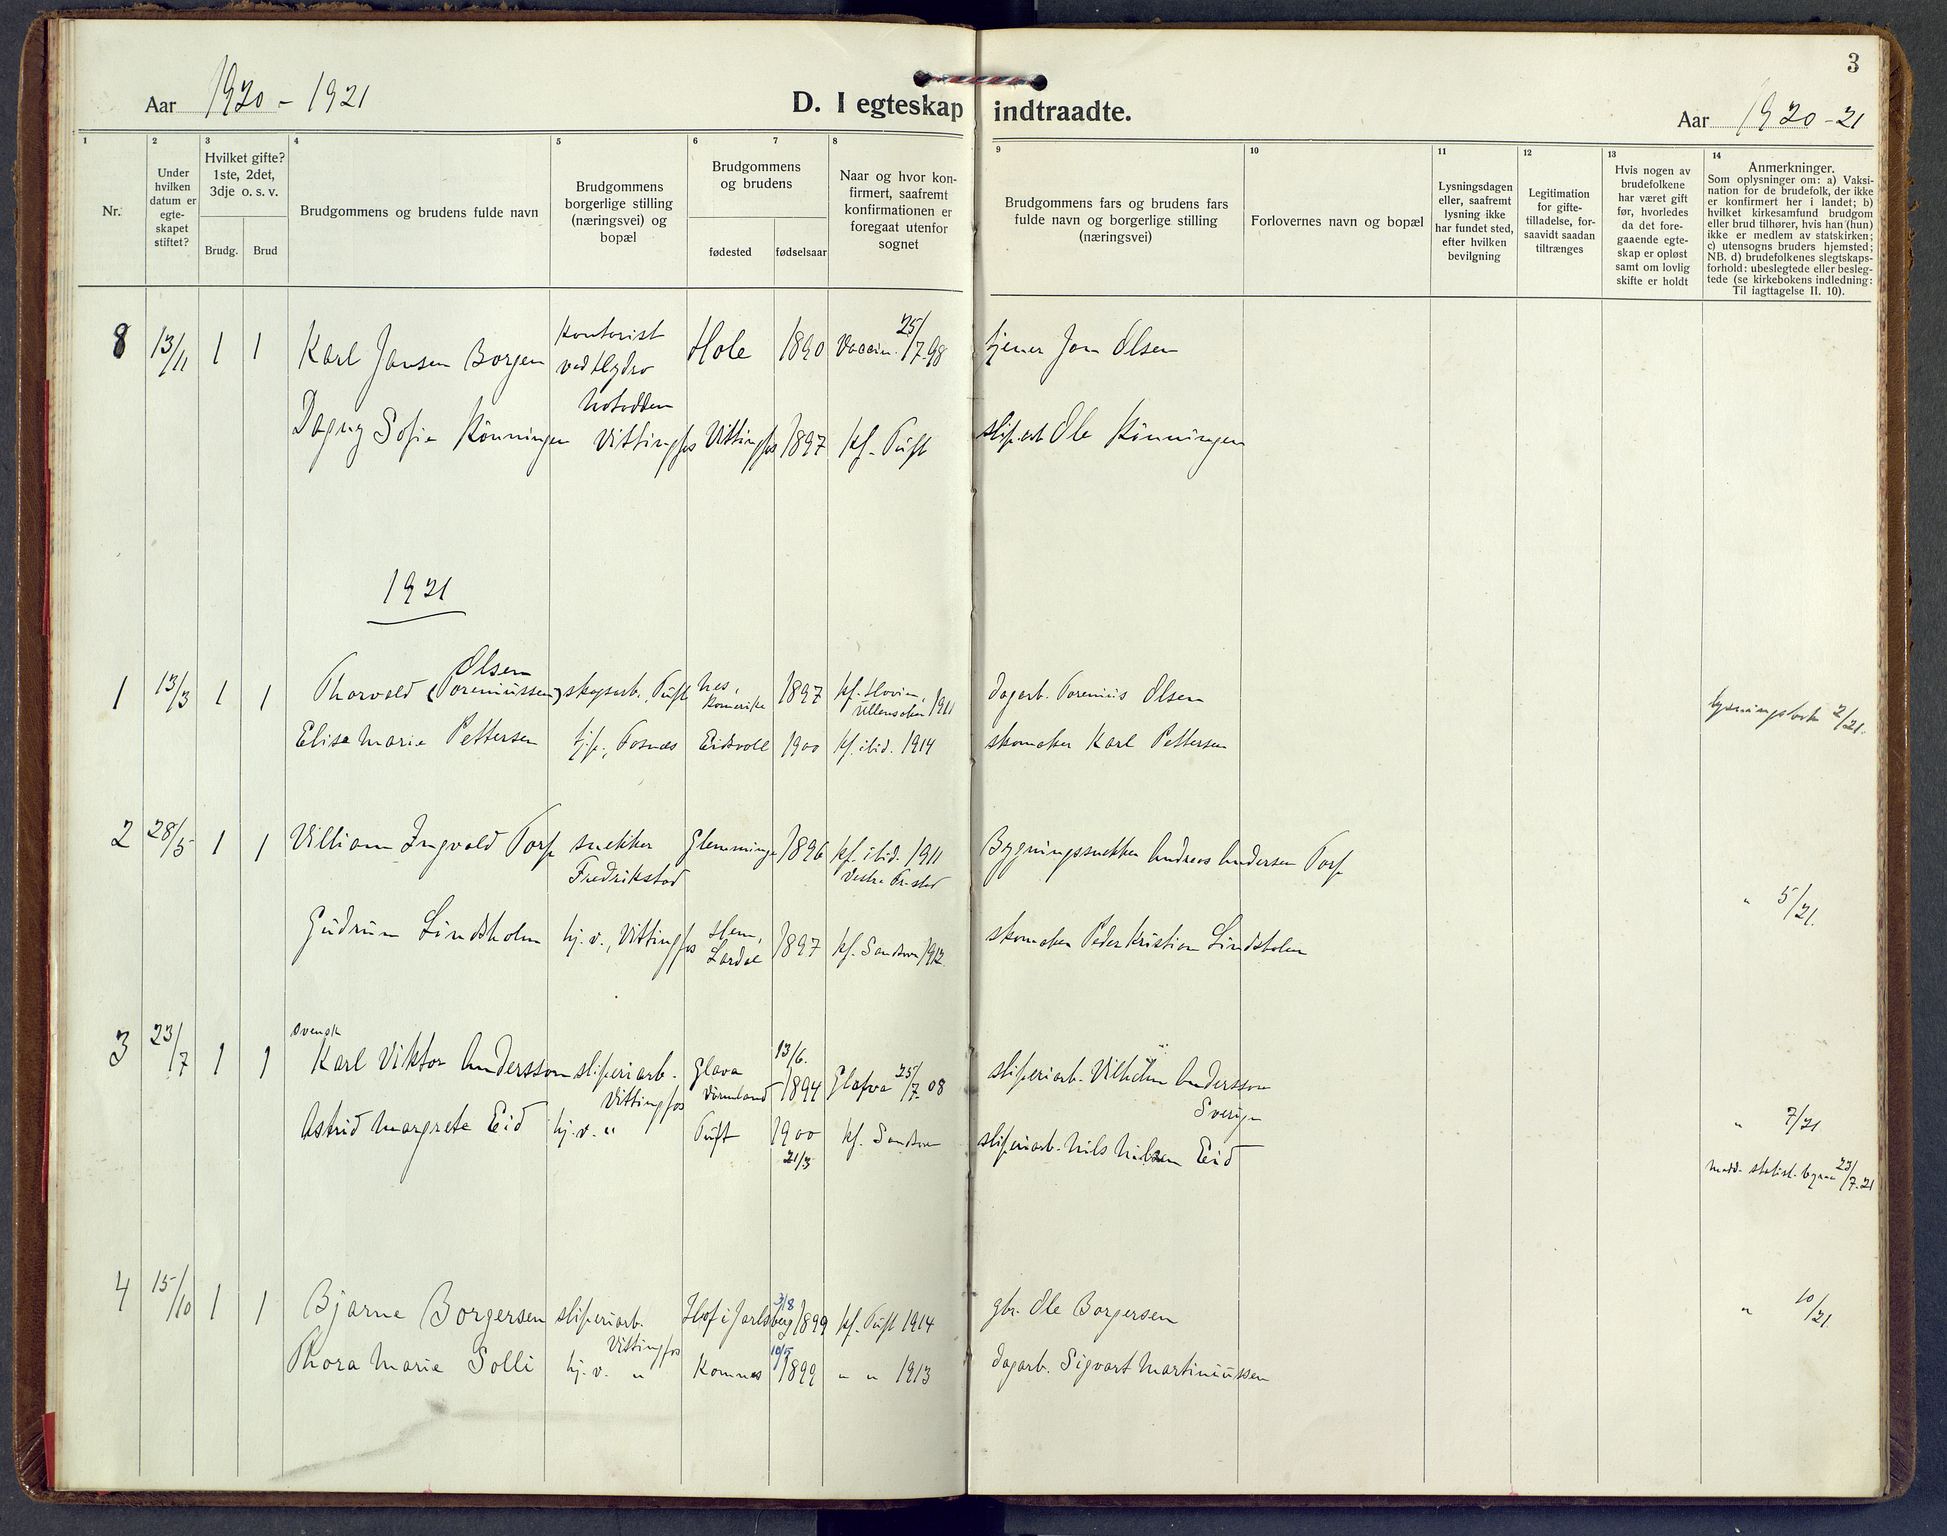 3
Aar 1920 - 1921
D. I egteskap indtraadte.
Aar 1920 - 21
1
Nr.
2
Under hvilken datum er egte-skapet stiftet?
3
Hvilket gifte? 1ste, 2det, 3dje o. s. v.
Brudg.
Brud
4
Brudgommens og brudens fulde navn
5
Brudgommens borgerlige stilling (næringsvei) og bopæl
6
7
Brudgommens og brudens
fødested
fødselsaar
8
Naar og hvor kon-firmert, saafremt konfirmationen er foregaat utenfor sognet
9
Brudgommens fars og brudens fars fulde navn og borgerlige stilling (næringsvei)
10
Forlovernes navn og bopæl
11
Lysningsdagen eller, saafremt lysning ikke har fundet sted, efter hvilken bevilgning
12
Legitimation for gifte-tilladelse, for-saavidt saadan tiltrænges
13
Hvis nogen av brudefolkene har været gift før, hvorledes da det fore-gaaende egte-skap er opløst samt om lovlig skifte er holdt
14
Anmerkninger.
Som oplysninger om: a) Vaksi-nation for de brudefolk, der ikke er konfirmert her i landet; b) hvilket kirkesamfund brudgom eller brud tilhører, hvis han (hun) ikke er medlem av statskirken; c) utensogns bruders hjemsted; NB. d) brudefolkenes slegtskaps-forhold: ubeslegtede eller besleg-tede (se kirkebokens indledning: Til iagttagelse II. 10).
8 13/11 1 1 Karl Jansen Borgen kontorist ved Hydro Notodden Hole 1890 Vaccin. 25/7-98 tjener Jon Olsen
Dagny Sofie Rønningen Vittingfos Vittingfos 1897 kf. Tuft Ole Rønningen
1921
1 13/3 1 1 Thorvald Olsen (Toreniussen) skogsarb., Tuft Nes, Romerike 1897 kf. Hovin, Ullensaker 1911 dagarb. Torenius Olsen 2/21.
Elise Marie Pettersen tjp., Fosnæs Eidsvoll 1900 kf. ibid. 1914 skomaker Karl Pettersen
2 28/5 1 1 Villiam Ingvald Torp snekker Fredrikstad Glemminge 1896 kf. ibid. 1911 Vestre Fr.stad Bygningssnekker Andreas Andersen Torp
Gudrun Lindsholm hj. v., Vittingfos Hem, Lardal 1897 kf. Sandsvær 1912 skomaker Peder Kristian Lindsholm " 5/21.
3 23/7 1 1 svensk Karl Viktor Andersson sliperiarb. Vittingfos Glava Värmland 13/6. 1894 Glafva 25/7-08 sliperiarb. Vilhelm Andersson Sverige
Astrid Margrete Eid hj. v. " Tuft 1900 21/3 kf. Sandsvær sliperiarb. Nils Nilsen Eid " 7/21
medd. statist. byraa 23/7-21
4 15/10 1 1 Bjarne Borgersen sliperiarb. Vittingfos Hof i Jarlsberg 3/8 1899 kf. Tuft 1914 gbr. Ole Borgersen " 10/21.
Thora Marie Solli hj. v. " Komnes 10/5 1899 " " 1913 dagarb. Sigvart Martiniussen